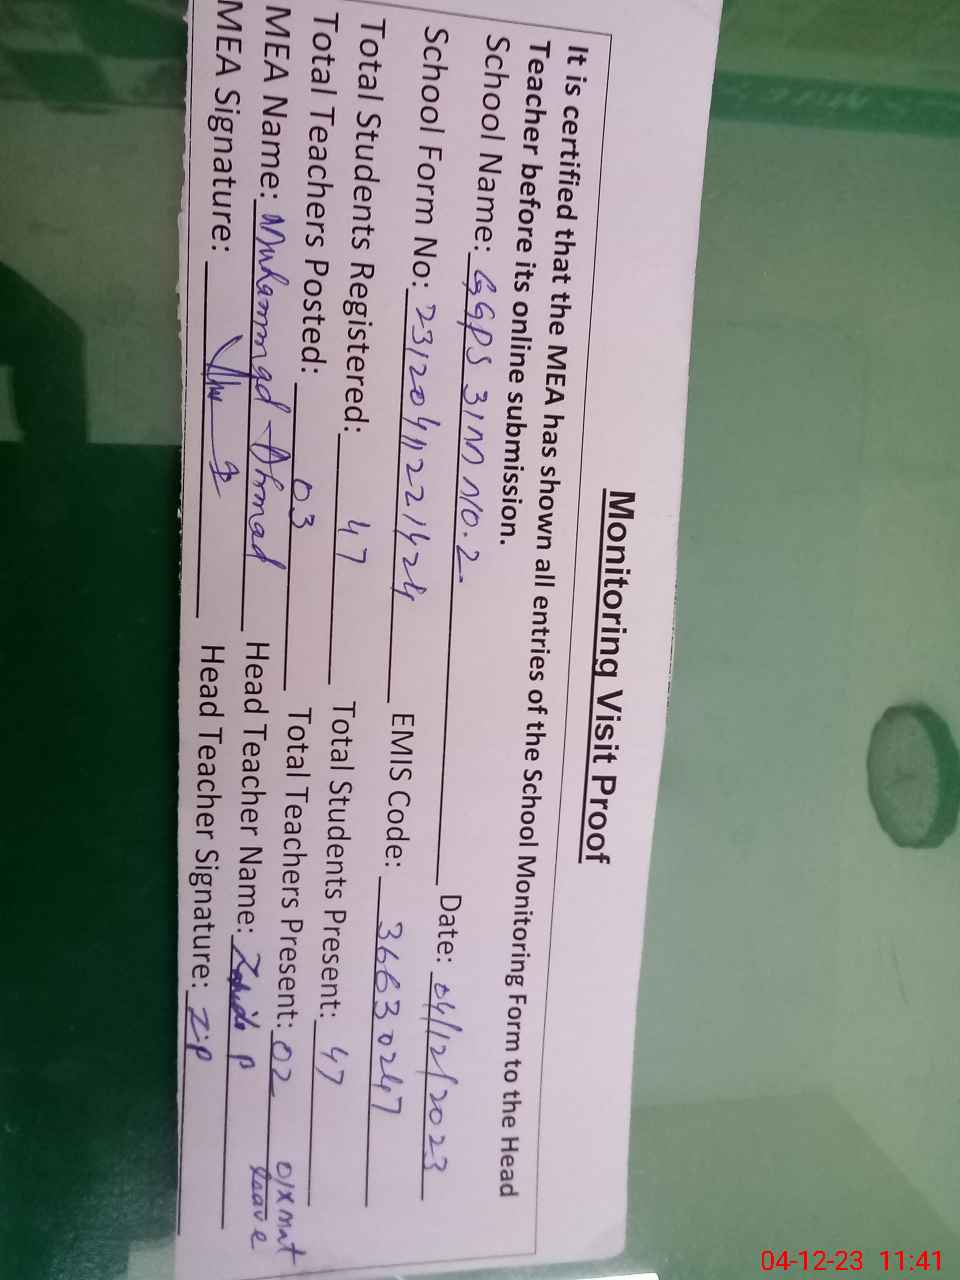 Monitoring Visit Proof
It is certified that the MEA has shown all entries of the School Monitoring Form to the Head
Teacher before its online submission.
School Name: GGPS 31M NO.2 Date: 04/12/2023
School Form No: 23120411221424 EMIS Code: 36630247
Total Students Registered: 47 Total Students Present: 47
Total Teachers Posted: 03 Total Teachers Present: 02 01xmat
leave
MEA Name: Muhammad Ahmad Head Teacher Name: Zahida P
MEA Signature: Head Teacher Signature: ZiP
04-12-23 11:41